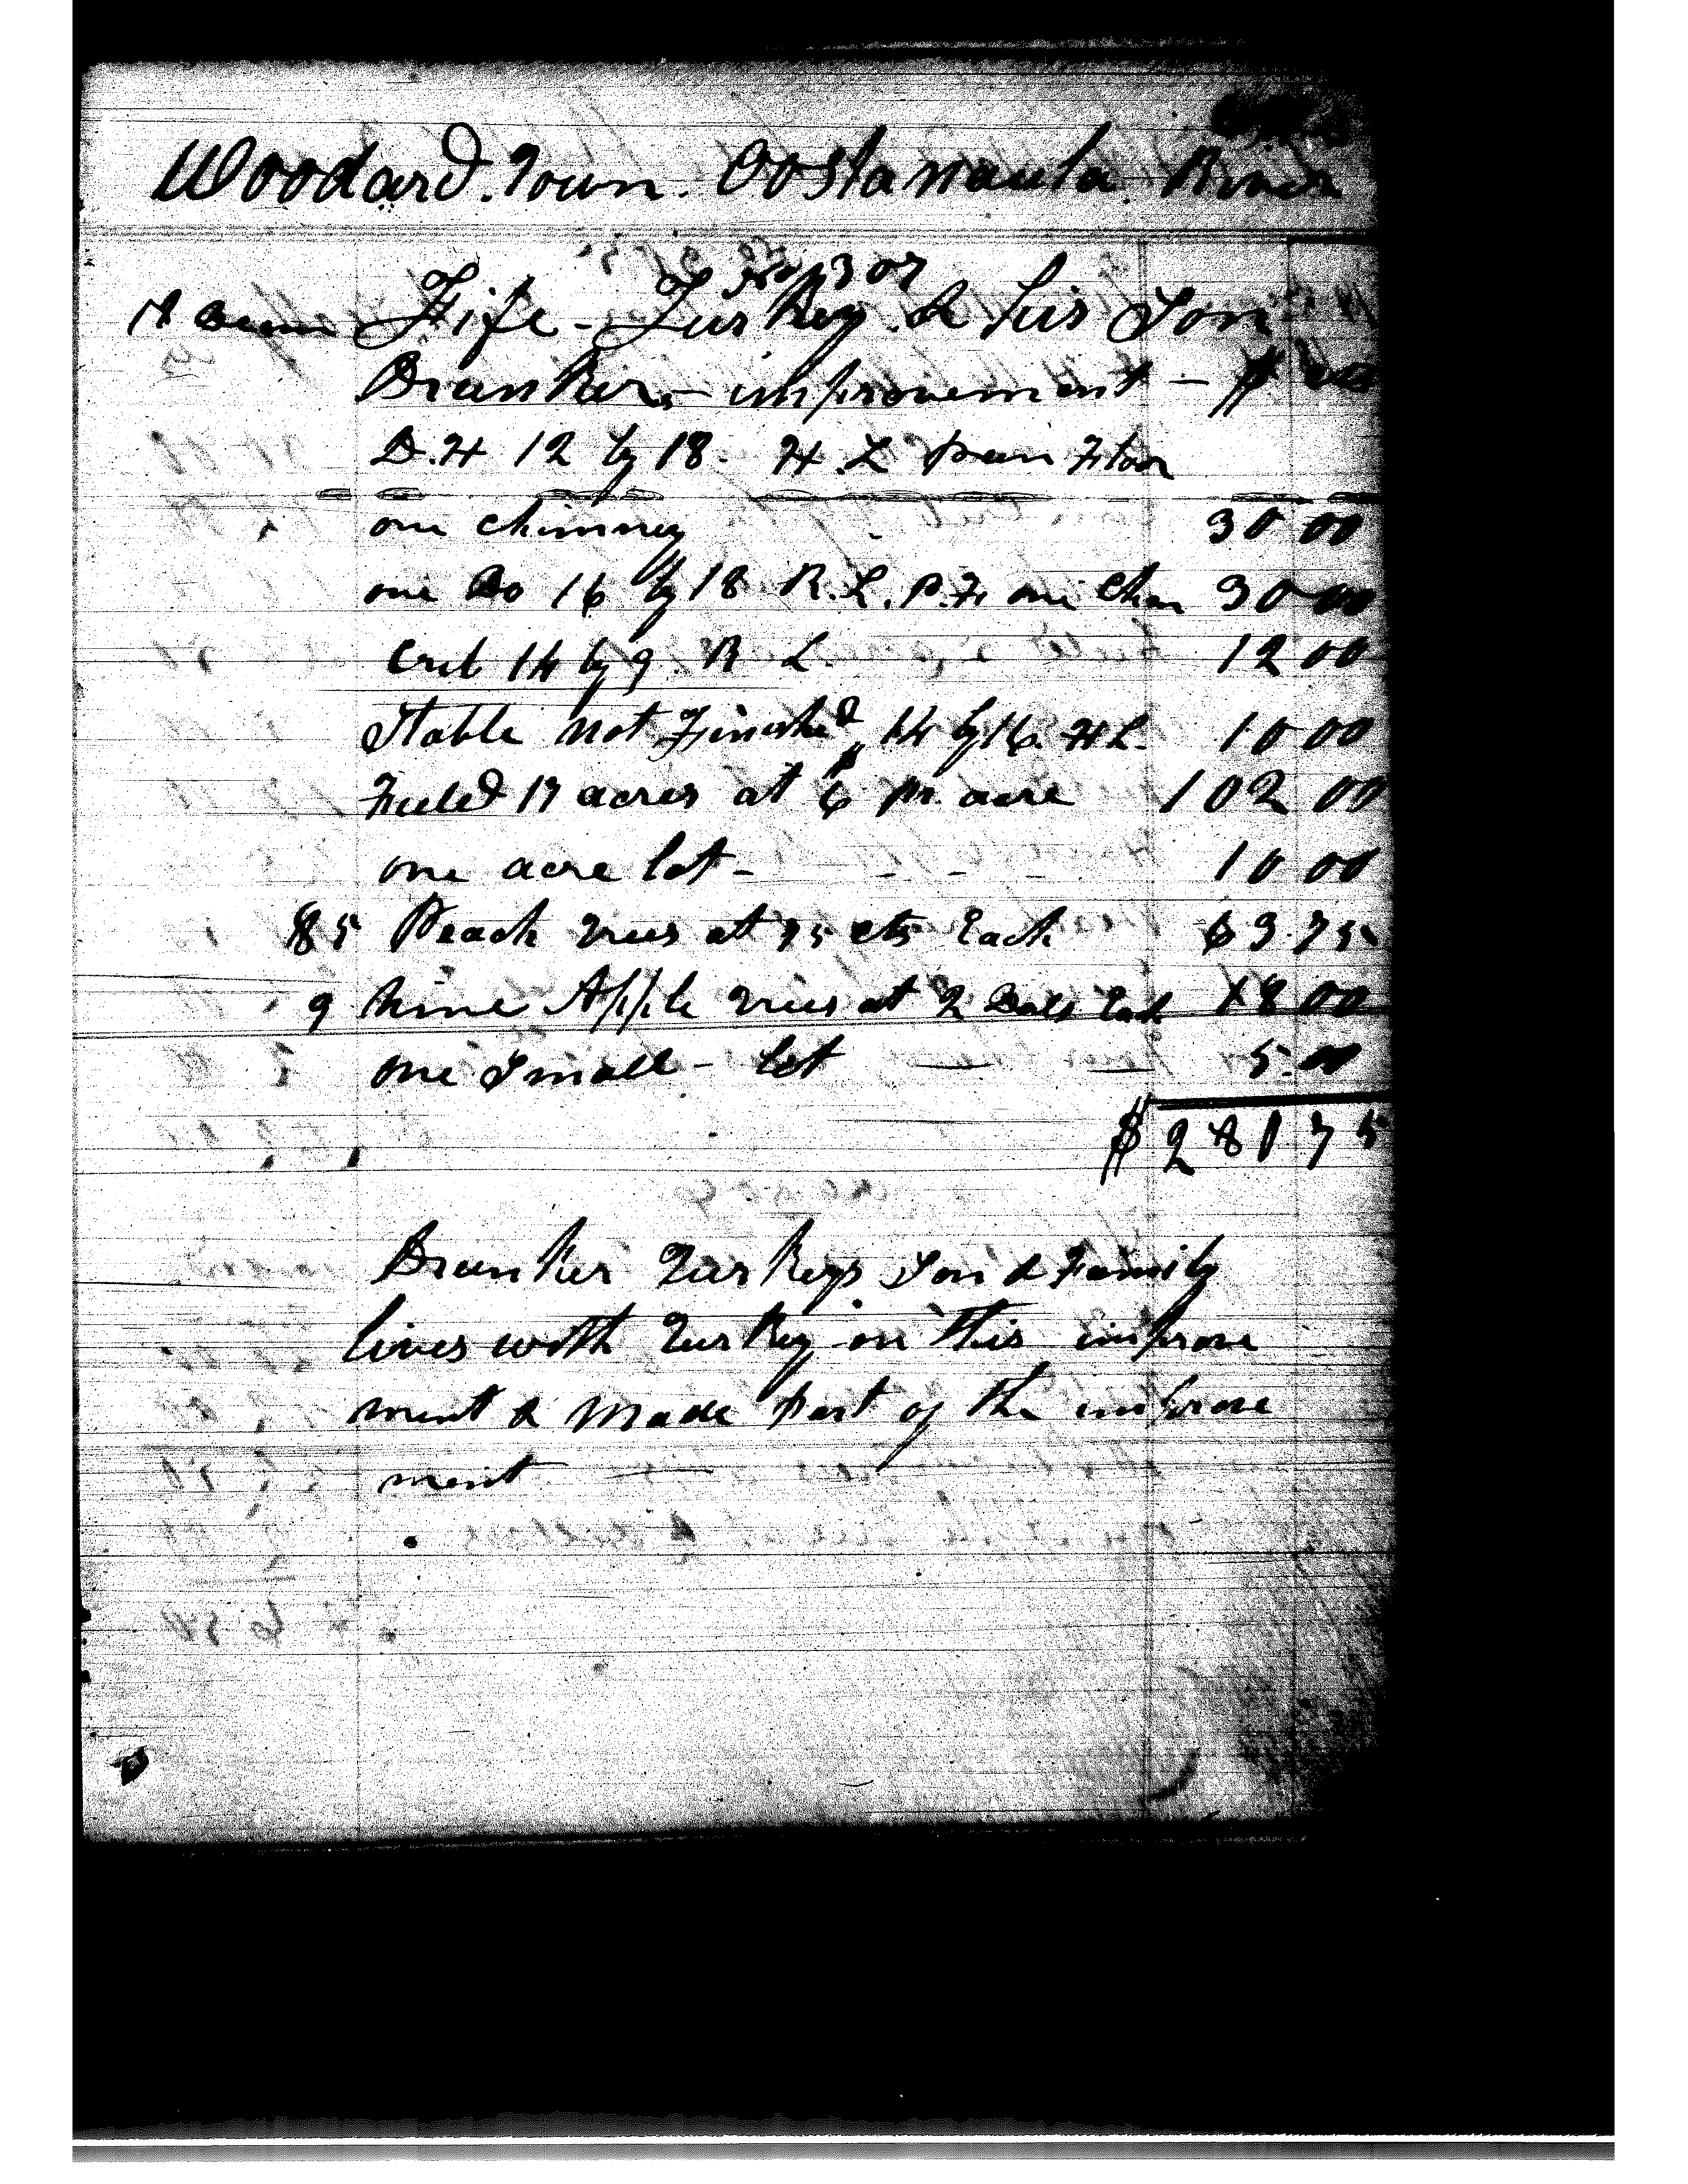 Woodard. Town. Oostanaula River
No 307
Fife - Turkey & his Son
Drunkers - improvement - $ cts
D.H 12 by 18. H. L pun Floor
one chimney 30 00
one Do 16 by 18 R. L. P. F. one Chm 30 00
Crib 14 by 9 R L. 12 00
Stable not Finished 14 by 16. H L. 10 00
Field 17 acres at $6 pr. acre 102 00
one acre lot - - - - 10 00
85 Peach Trees at 75 cts Each 63.75
9 Nine Apple Trees at 2 Dolls Each 18 00
one Small - lot 5.00
$ 281 75
Drunker Turkeys Son & Family
lives with Turkey on this improve
ment & made part of the improve
ment